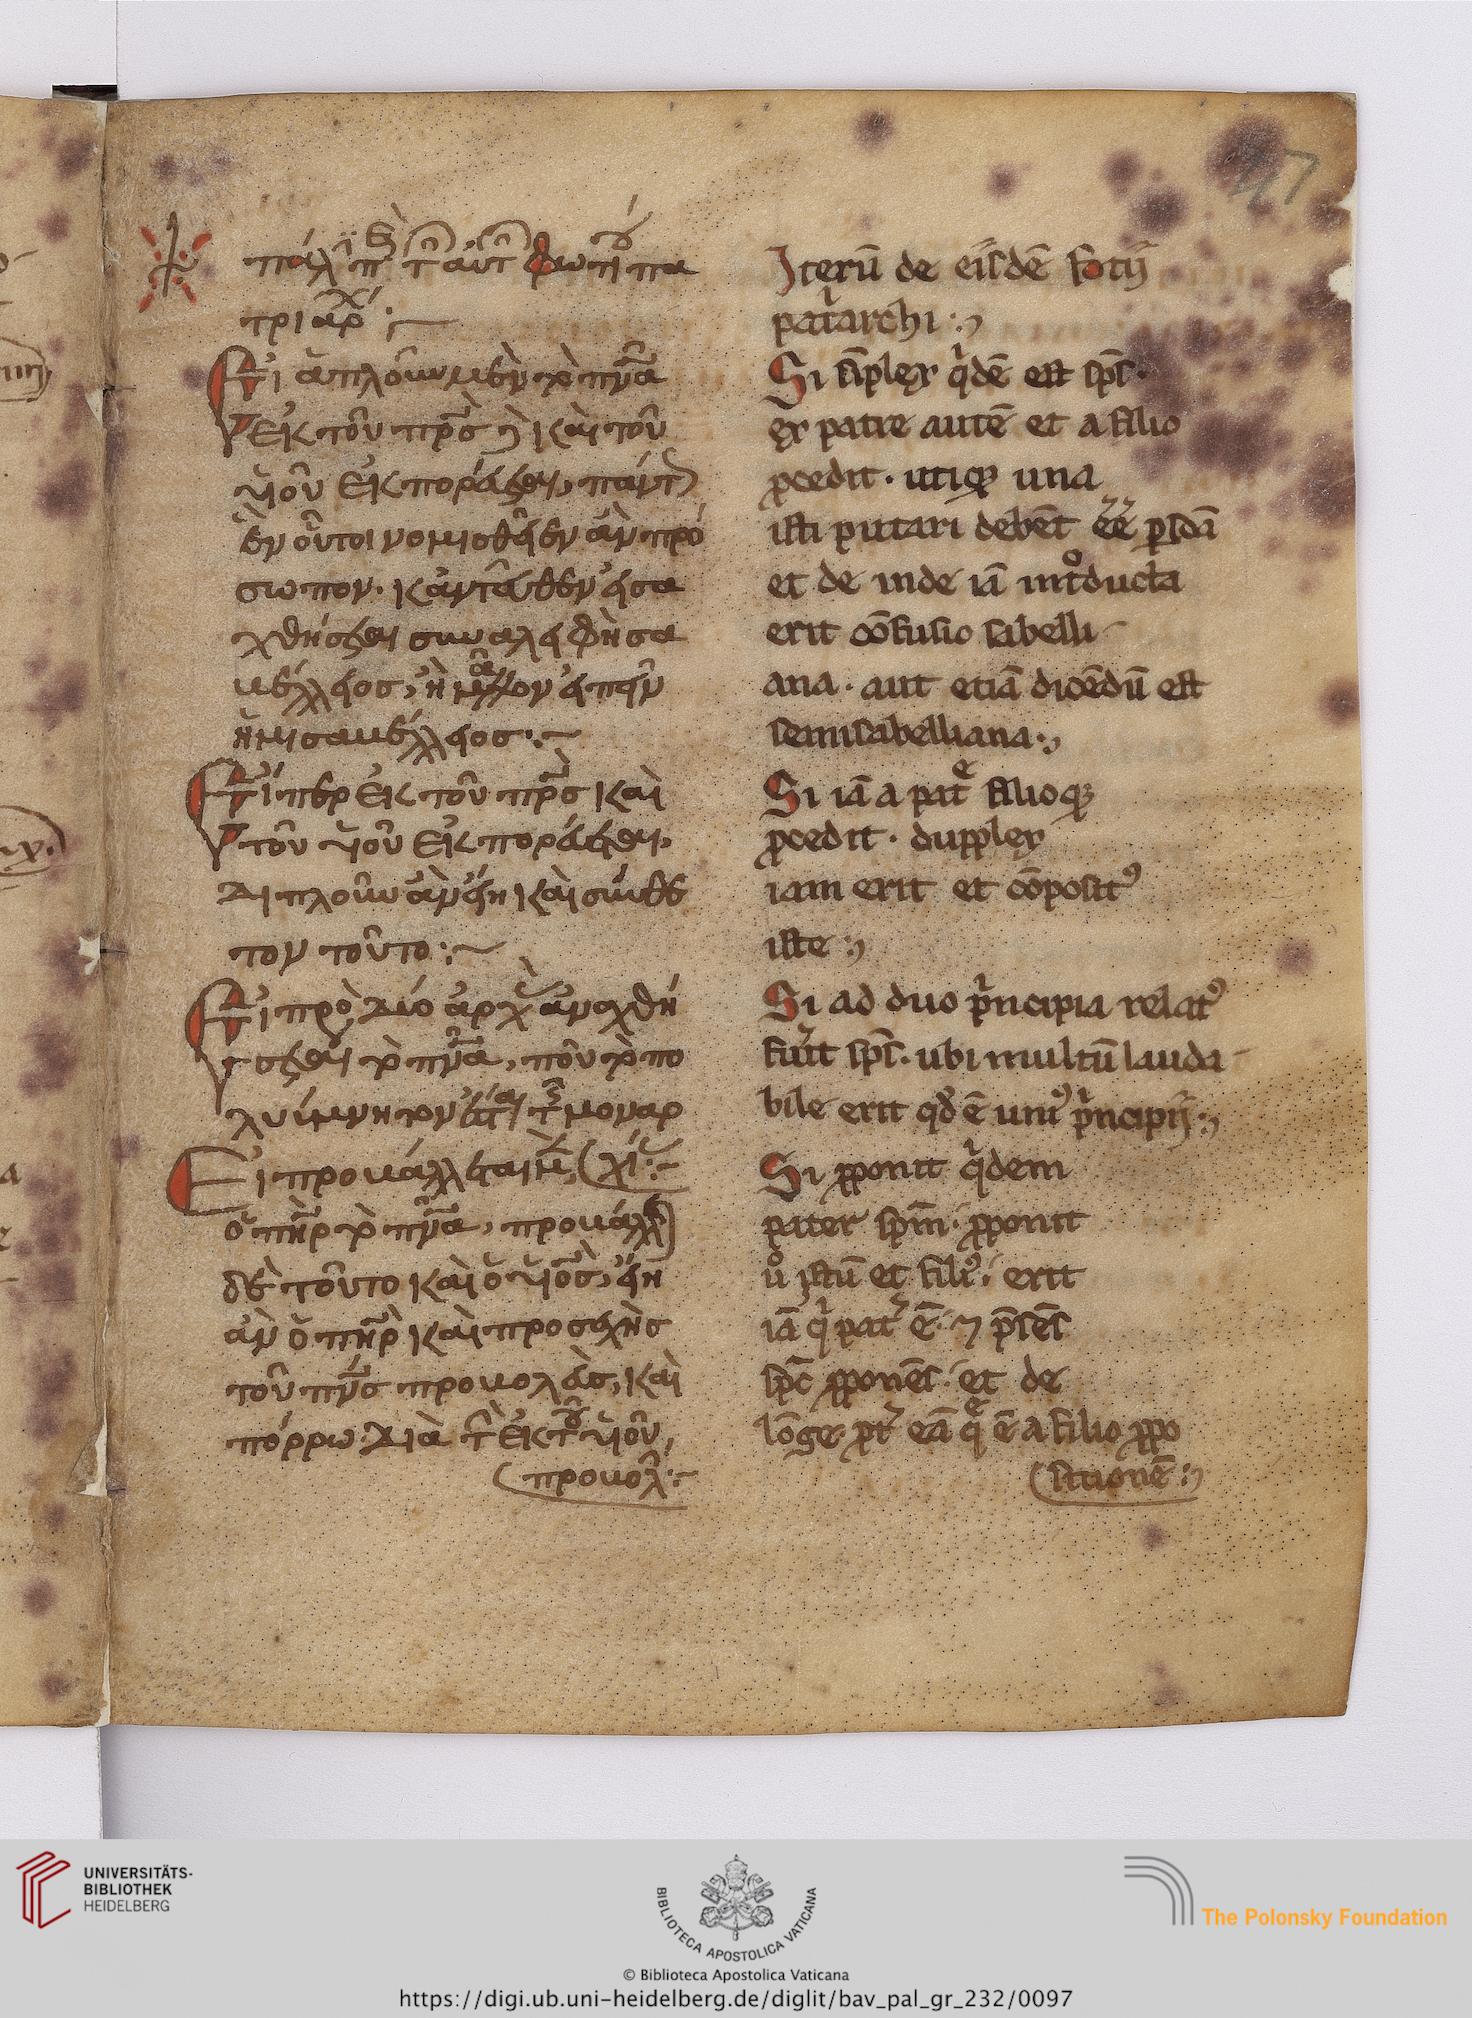 47
πάλ π τ αὐτ φωτί πα
τριάρχ
Εἰ ἁπλοῦν μὲν τὸ πνᾶ
ἐκ τοῦ πρς καὶ τοῦ
υἱοῦ ἐκπορεύεται, πάντ
ἓν οὗτοι νομισθεῖεν ἂν πρό
σωπον. κἀντεῦθεν εἰσα
χθήσεται συναλοιφὴ σα
βέλλειος, ἢ μᾶλλον εἰπεῖν
ἡμισαβέλλειος
Εἴπερ ἐκ τοῦ πρς καὶ
τοῦ υἱοῦ ἐκπορεύεται,
διπλοῦν ἂν εἴη καὶ σύνθε
τον τοῦτο
Εἰ πρὸ δύο ἀρχ ἀναχθή
σεται τὸ πνᾶ, ποῦ τὸ πο
λυύμνητον ἔσται τ μοναρ
χί
Εἰ προβάλλεται μ
ὁ πηρ τὸ πνᾶ, προβάλλ
δὲ τοῦτο καὶ ὁ υἱός, εἴη
ἂν ὁ πηρ καὶ προσεχὴς
τοῦ πνς προβολεὺς, καὶ
πόρρω διὰ τ ἐκ τ υἱοῦ,
προβολ
Iterū de eiusdē fotij
patarchi
Si simplex qdē est sps.
ex patre autē et a filio
pcedit. utiqz una
isti putari debēt eē psōa
et de inde iā introducta
erit cōfusio sabelli
ana. aut etiā dicēdū est
semisabelliana
Si iā a patre filioqz
pcedit. dupplex
iam erit et cōposit9
iste
Si ad duo principia relat9
fuit sps. ubi multū lauda
bile erit qd ē uni9 principij
Si pponit qdem
pater spm. pponit
u istū et fili9. erit
iā q pat ē. 7 psēs
spc pponēs. et de
lōge pt eā q ē a filio ppo
sitionē
UNIVERSITÄTS-
BIBLIOTHEK
HEIDELBERG
BIBLIOTECA APOSTOLICA VATICANA
The Polonsky Foundation
© Biblioteca Apostolica Vaticana
https://digi.ub.uni-heidelberg.de/diglit/bav_pal_gr_232/0097